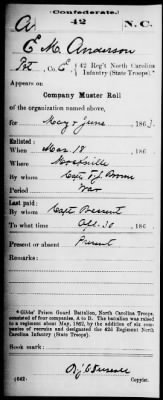 (Confederate.)
A 42 N.C.
E M Anderson
Pvt, Co. E, { 42 Reg't North Carolina
Infantry (State Troops).*
Appears on
Company Muster Roll
of the organization named above,
for May & June, 1863.
Enlisted:
When Mar 18, 186
Where Mocksville
By whom Capt T. J. Brown
Period War
Last paid:
By whom Capt
To what time Apl. 30, 186
Present or absent Present
Remarks:
*Gibbs' Prison Guard Battalion, North Carolina Troops,
consisted of four companies, A to D. The battalion was raised
to a regiment about May, 1862, by the addition of six com-
panies of recruits and designated the 42d Regiment North
Carolina Infantry (State Troops).
Book mark:
(642)
Copyist.